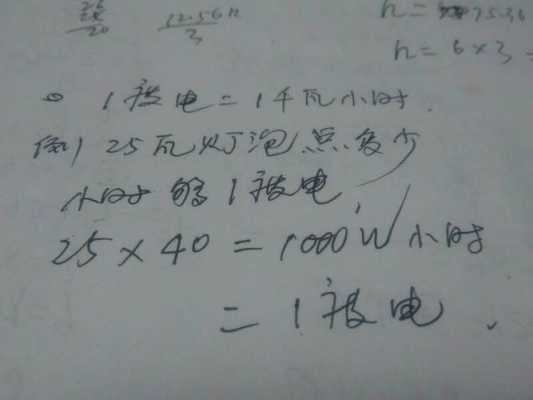 12.56h
3
h=
h=6×3
1度电=1千瓦小时.
例) 25瓦灯泡点多少
小时够1度电
25×40=1000W小时
=1度电.